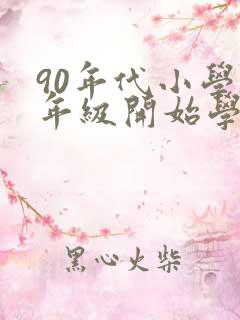 90年代小學
年級開始學
黑心火柴